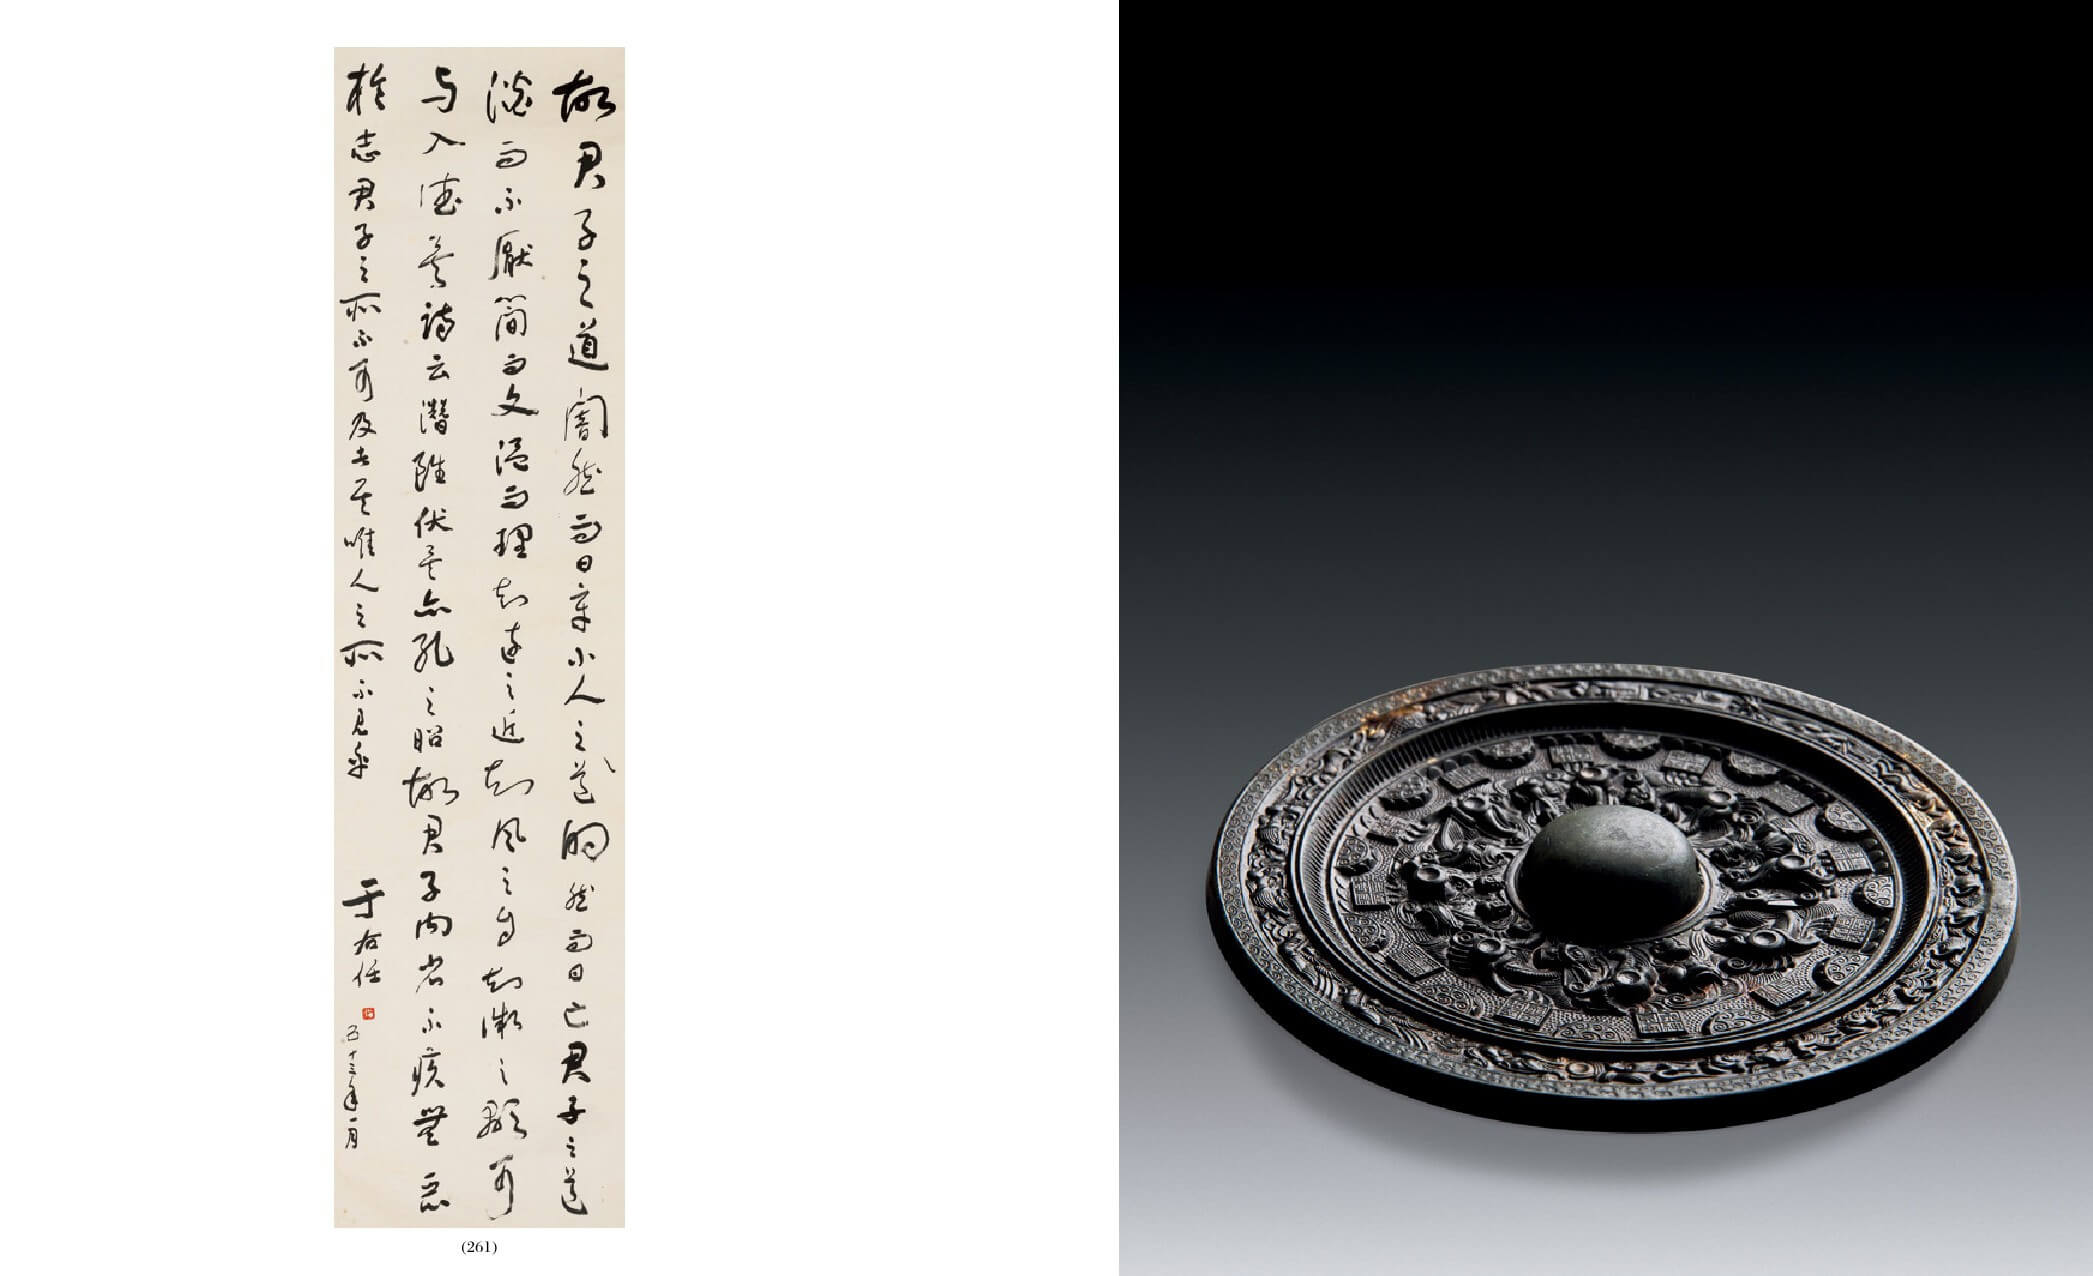 故君子之道闇然而日章小人之道的然而日亡君子之道
淡而不厭簡而文溫而理知遠之近知風之自知微之顯可
与入德矣詩云潛雖伏矣亦孔之昭故君子內省不疚無惡
於志君子之所不可及者其唯人之所不見乎
于右任
五十三年一月
(261)